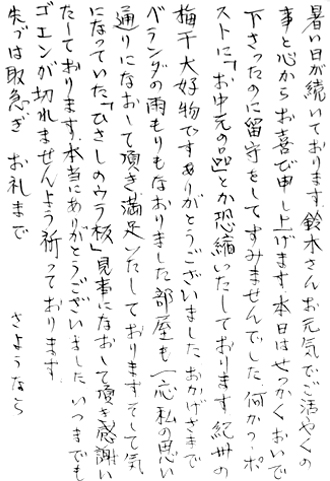 暑い日が続いております。鈴木さんお元気でご活やくの
事と心からお喜び申し上げます。本日はせっかくおいで
下さったのに留守をしてすみませんでした。何かつポ
ストに「お中元の品」とか恐縮いたしております 紀州の
梅干大好物ですありがとうございました。おかげさまで
ベランダの雨もりもなおりました 部屋も一応私の思い
通りになおして頂き満足いたしております そして気
になっていた「ひさしのウラ板」見事になおして頂き感謝い
たしております。本当にありがとうございました いつまでも
ゴエンが切れませんよう祈っております。
先づは取急ぎ お礼まで さようなら